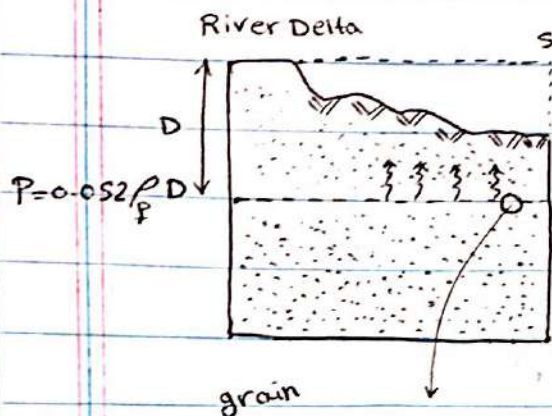 River Delta
S
D
P=0.052ρ_p D
grain